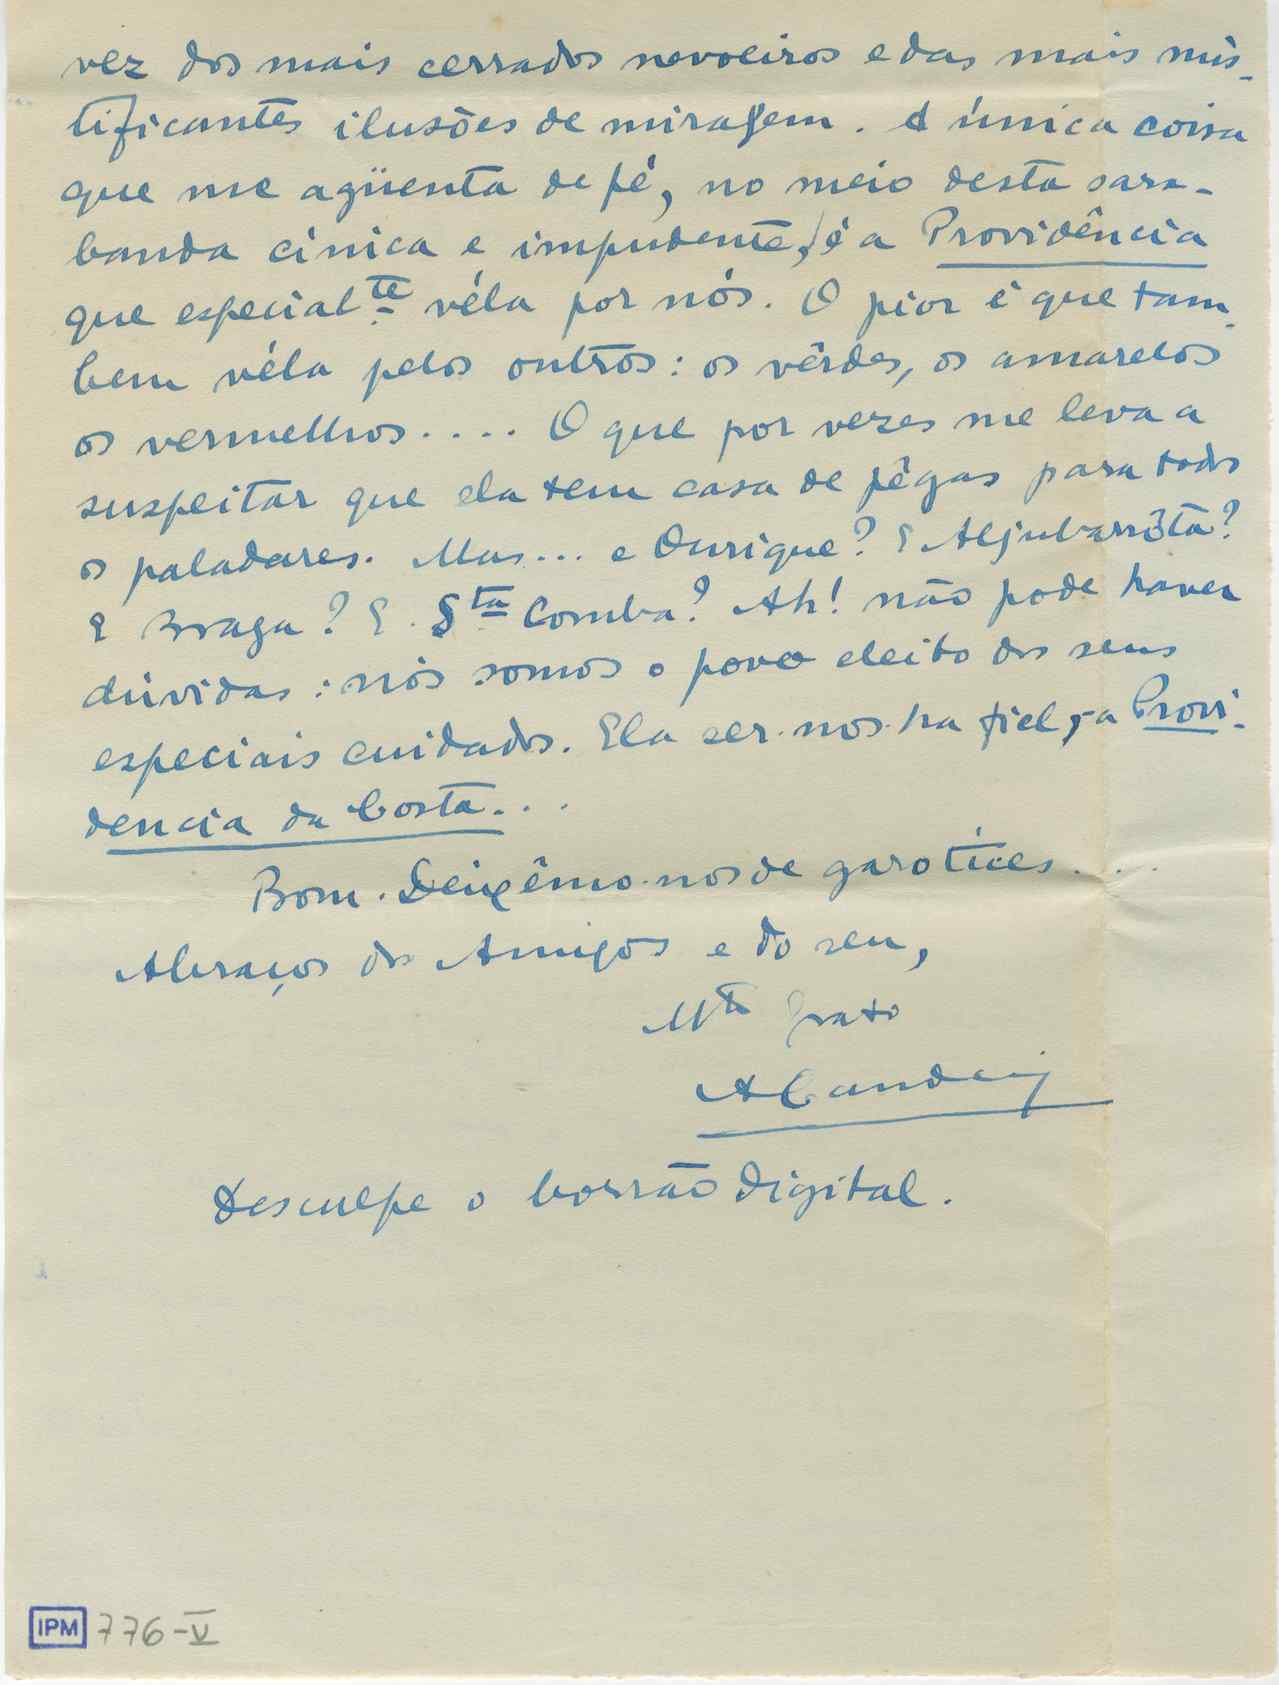 vez dos mais cerrados nevoeiros e das mais mis-
tificantes ilusões de miragem. A única coisa
que me agüenta de pé, no meio desta sara-
banda cínica e impudente, é a Providência
que especialte véla por nós. O pior é que tam-
bem véla pelos outros: os vêrdes, os amarelos
os vermelhos.... O que por vezes me leva a
suspeitar que ela tem casa de pêgas para todos
os paladares. Mas... e Ourique? E Aljubarróta?
E Braga? E Sta Comba? Ah! não pode haver
dúvidas: nós somos o povo eleito dos seus
especiais cuidados. Ela ser-nos-ha fiel, a Provi-
dencia da Costa...
Bom. Deixêmo-nos de garotices....
Abraços dos Amigos e do seu,
Mto grato
Desculpe o borrão digital.
IPM 776-V